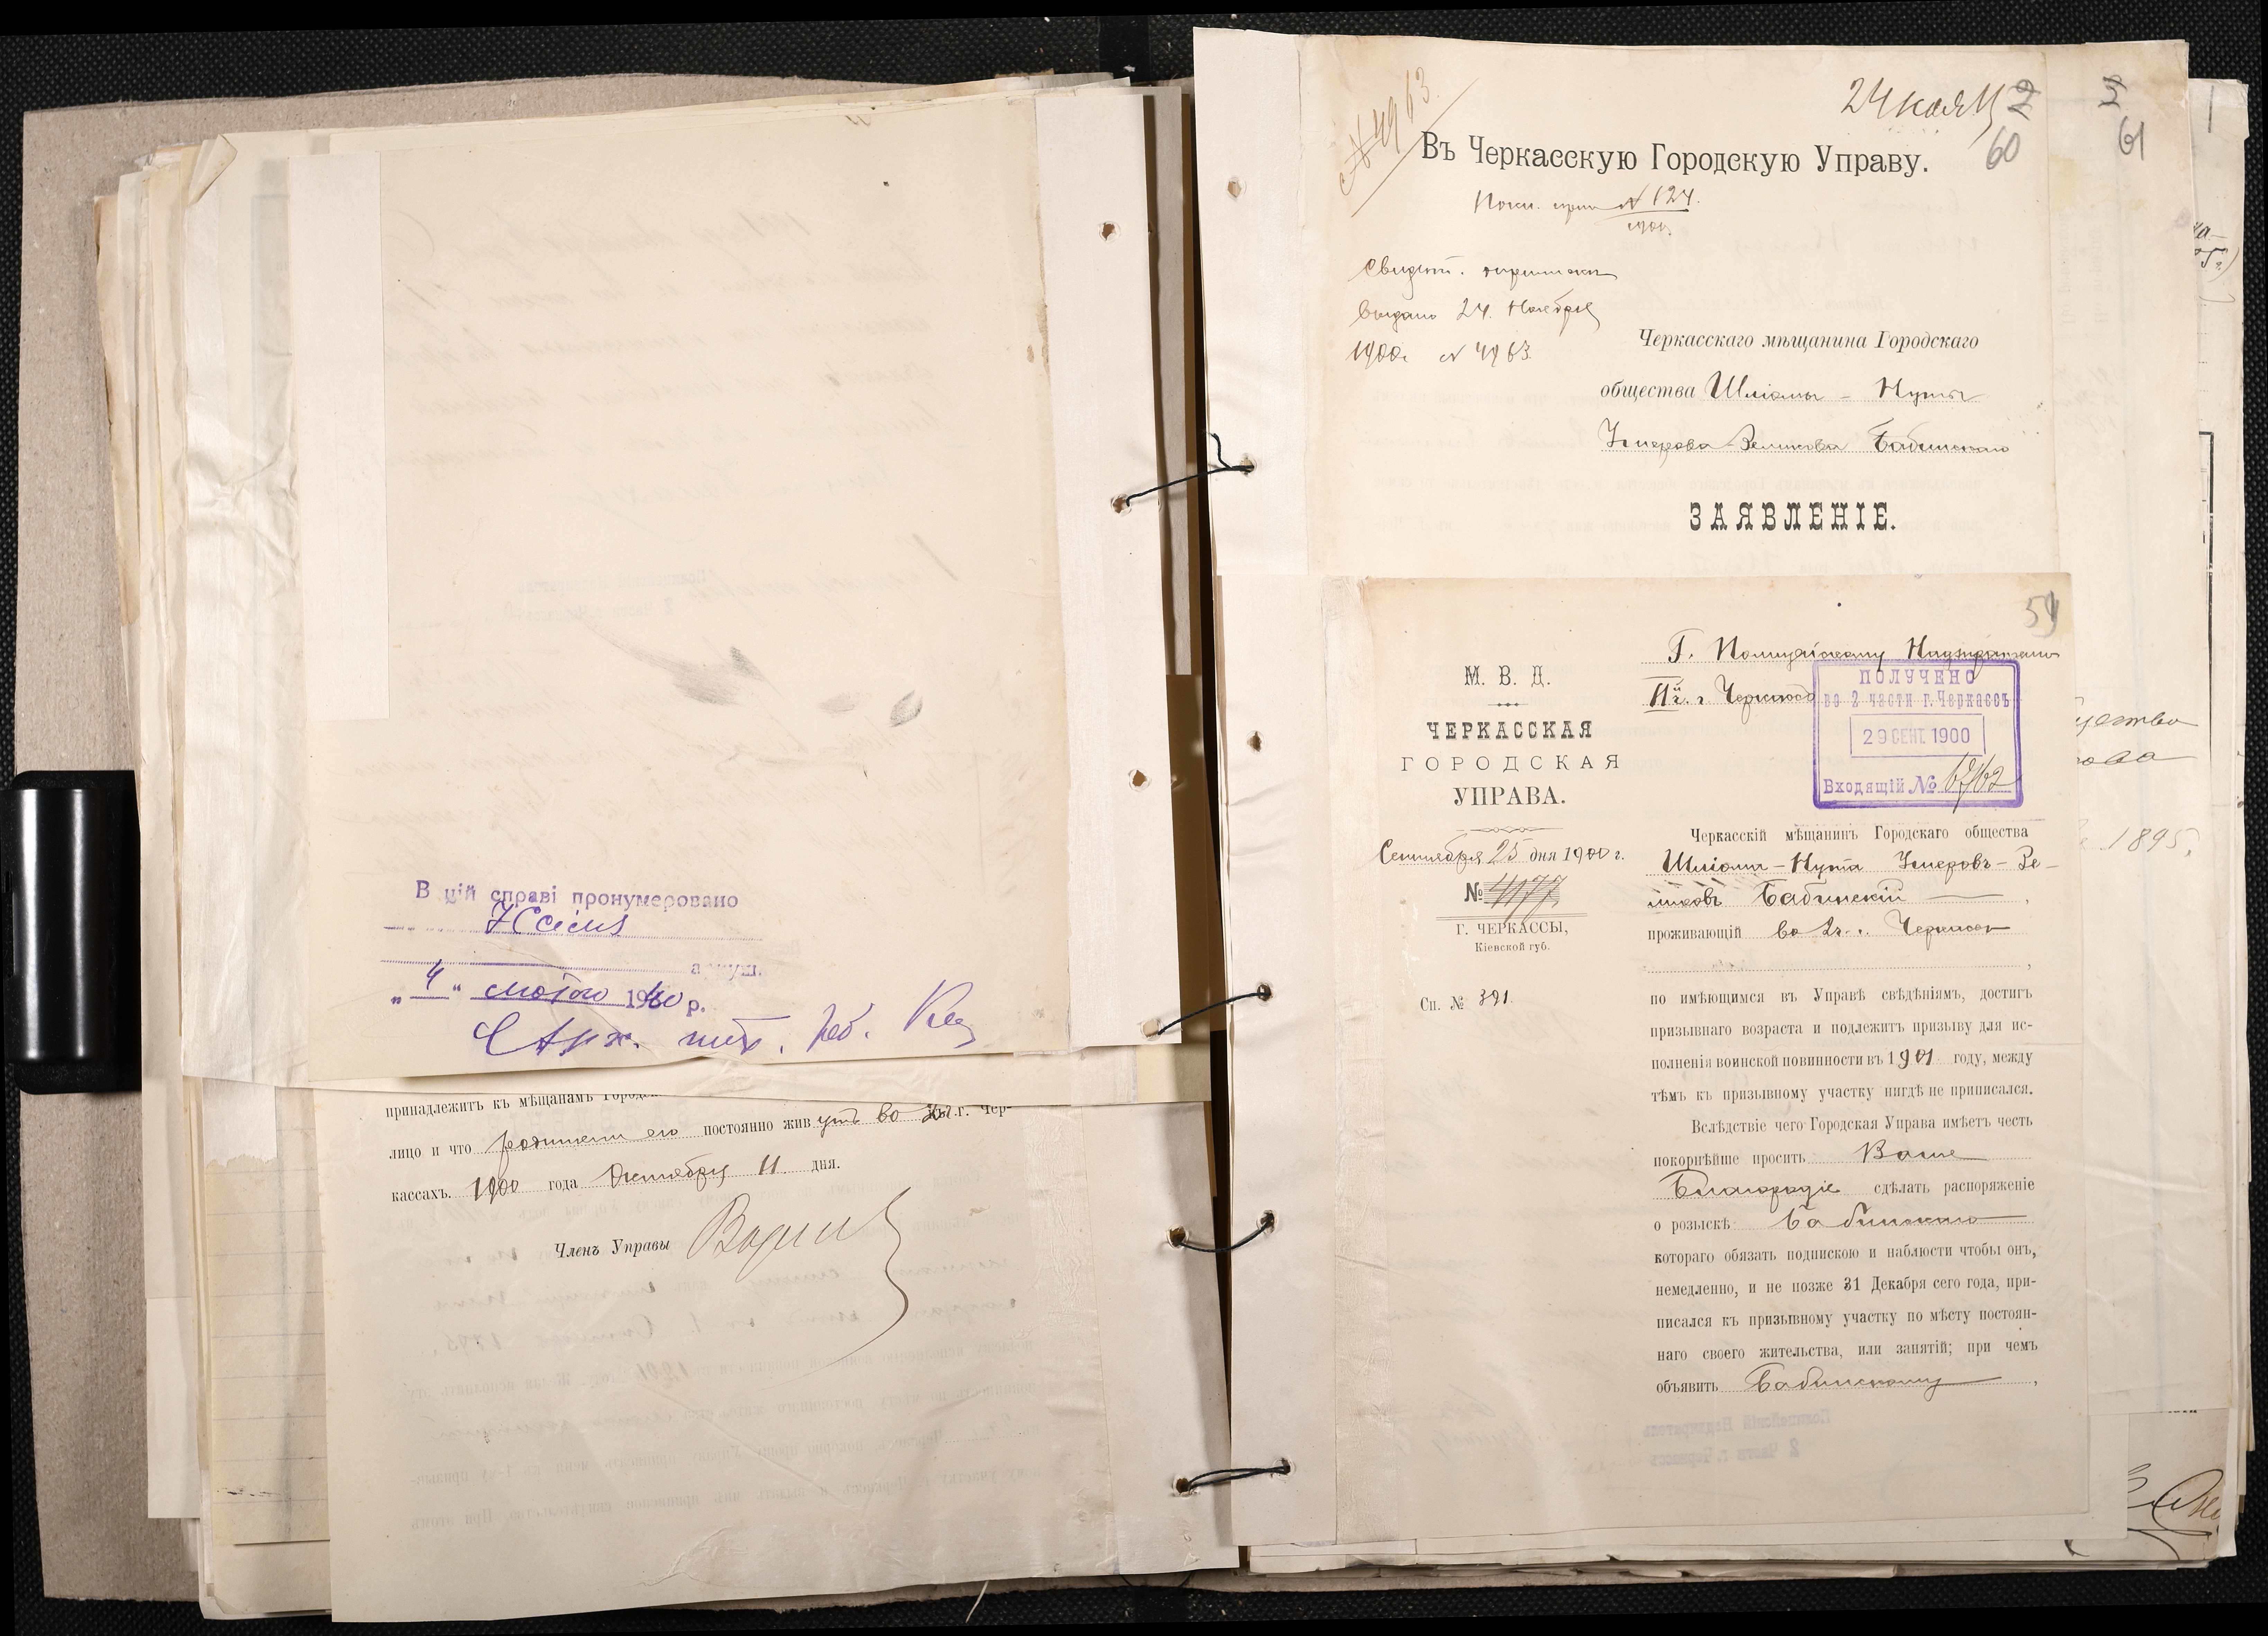 В цій справі пронумеровано
аркуш.
„4“ лютого 1960 р.
принадлежитъ къ мѣщанамъ
лицо и что родители его постоянно живутъ во 2 ч. г. Чер-
кассахъ. 1900 года Октября 11 дня.
Членъ Управы
24 нояб
2
60
3
61
№ 4963.
Въ Черкасскую Городскую Управу.
№ 124.
Свидѣт. о приписки
выдано 24 Ноября
1900 г. № 4963.
Черкасскаго мѣщанина Городскаго
общества Шліомы - Нуты
Умерова-Зеликова Бабинскаго
ЗАЯВЛЕНІЕ.
59
М. В. Д.
ЧЕРКАССКАЯ
ГОРОДСКАЯ
УПРАВА.
Сентября 25 дня 1900 г.
№ 4177
Г. ЧЕРКАССЫ,
Кіевской губ.
Сп. № 391.
Г. Полицейскому Надзирателю
II ч. г. Черкассъ
ПОЛУЧЕНО
во 2 части г. Черкассъ
29 СЕНТ. 1900
Входящій №
Черкасскій мѣщанинъ Городскаго общества
Шліома-Нута Умеровъ-Зе-
ликовъ Бабинскій,
проживающій во 2 ч. г. Черкассъ
,
по имѣющимся въ Управѣ свѣдѣніямъ, достигъ
призывнаго возраста и подлежитъ призыву для ис-
полненія воинской повинности въ 1901 году, между
тѣмъ къ призывному участку нигдѣ не приписался.
Вслѣдствіе чего Городская Управа имѣетъ честь
покорнѣйше проситъ Ваше
Благородіе сдѣлать распоряженіе
о розыскѣ Бабинскаго
котораго обязать подпискою и наблюсти чтобы онъ,
немедленно, и не позже 31 Декабря сего года, при-
писался къ призывному участку по мѣсту постоян-
наго своего жительства, или занятій; при чемъ
объявить Бабинскому,
1895.